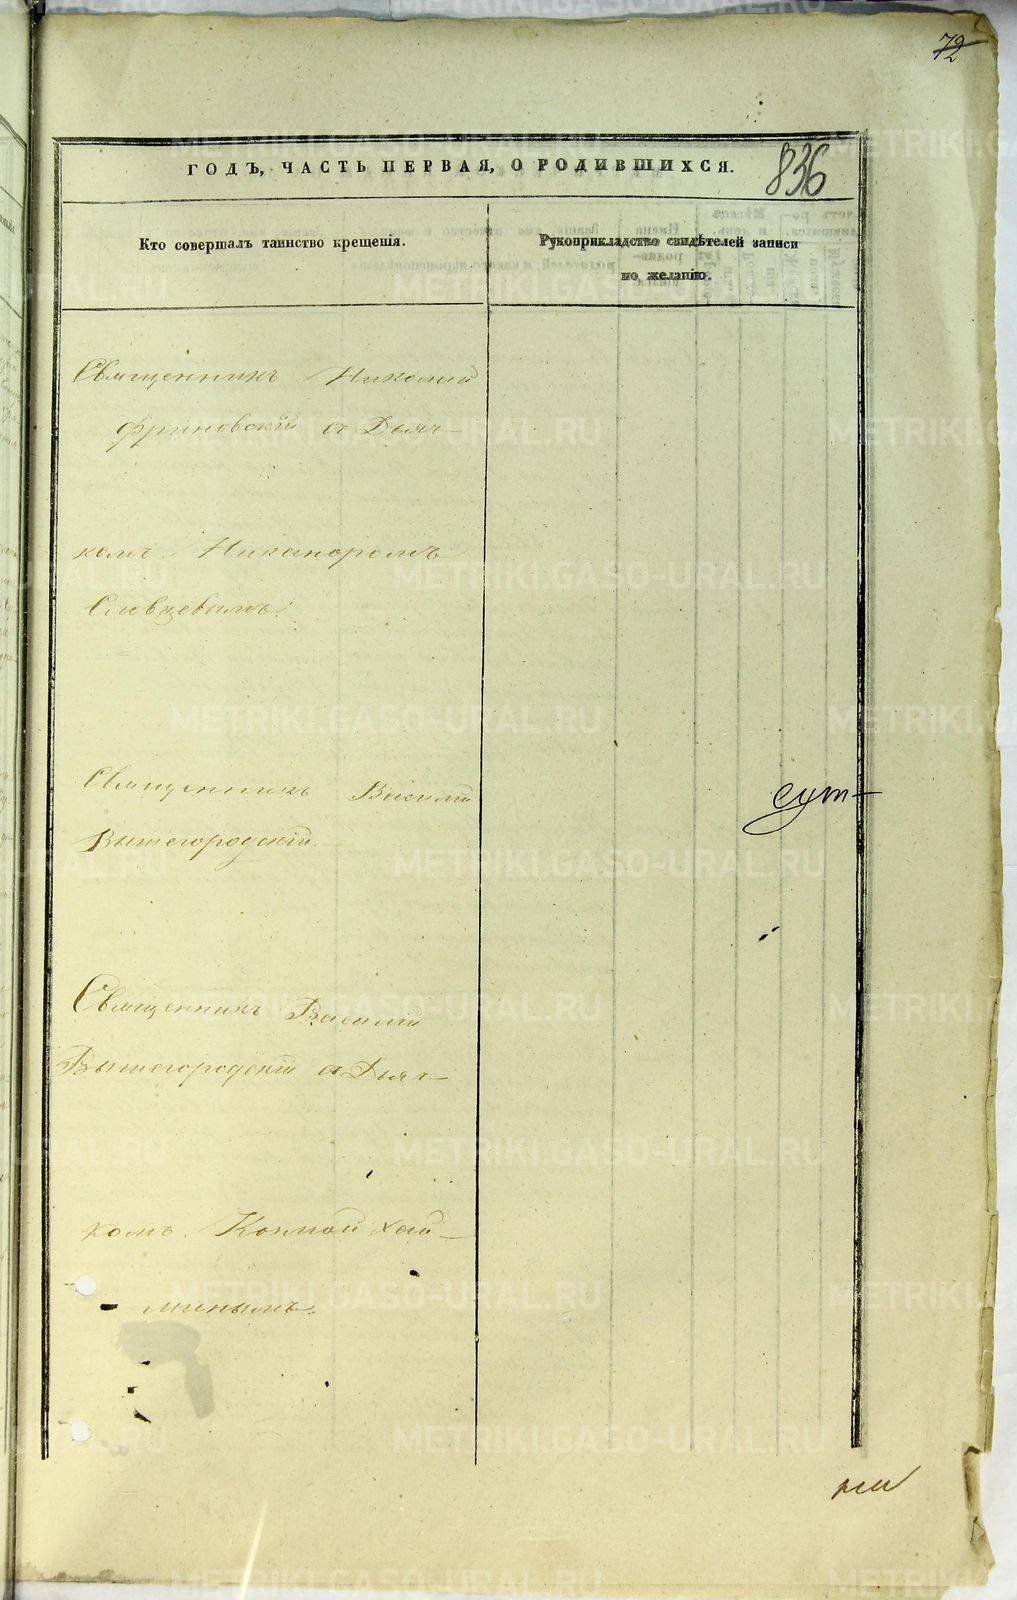 72
ГОДЪ, ЧАСТЬ ПЕРВАЯ, О РОДИВШИХСЯ.
836
Кто совершалъ таинство крещенія.
Рукоприкладство свидѣтелей записи
по желанію.
Священникъ Николай
Фриновскій съ Дьяч-
комъ Никаноромъ
Словцевымъ.
Священникъ Василій
Вышегородскій.
сут-
Священникъ Василій
Вышегородскій съ Дьяч-
комъ Козмой Хай-
минымъ.
METRIKI.GASO-URAL.RU